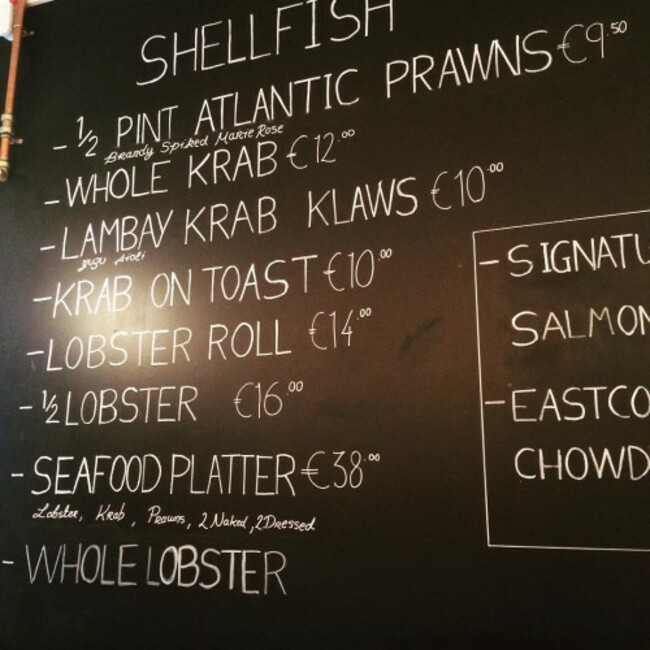 SHELLFISH
- 1/2 PINT ATLANTIC PRAWNS €9.50
Brandy Spiked Marie Rose
- WHOLE KRAB €12.00
- LAMBAY KRAB KLAWS €10.00
yuzu Aioli
- KRAB ON TOAST €10.00
- LOBSTER ROLL €14.00
- 1/2 LOBSTER €16.00
- SEAFOOD PLATTER €38.00
Lobster, Krab, Prawns, 2 Naked, 2 Dressed
- WHOLE LOBSTER
- SIGNATU
SALMON
- EASTCO
CHOWD